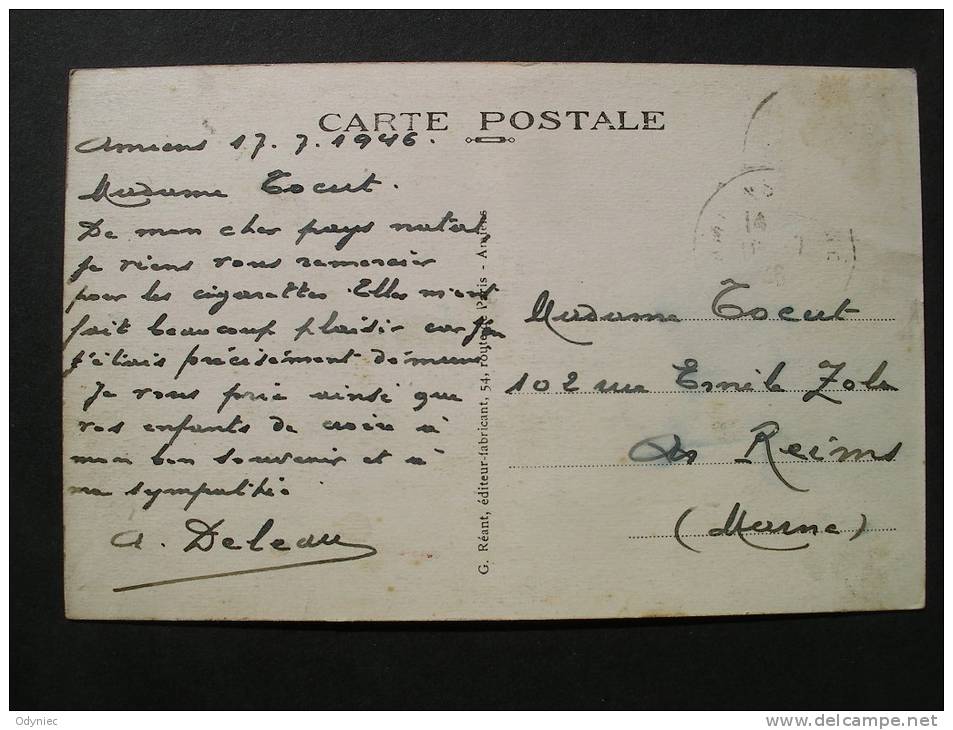 CARTE POSTALE
Amiens 17.7.1946.
Madame Tocut.
De mon cher pays natal
je viens vous remercier
pour les cigarettes. Elles m'ont
fait beaucoup plaisir car j'en
j'étais précisément démuni
Je vous prie ainsi que
vos enfants de croire à
mon bon souvenir et à
ma sympathie.
A. Deleau
G. Réant, éditeur-fabricant, 54, route Paris - Amiens
Madame Tocut
102 rue Emile Zola
Reims
(Marne)
Odyniec
www.delcampe.net